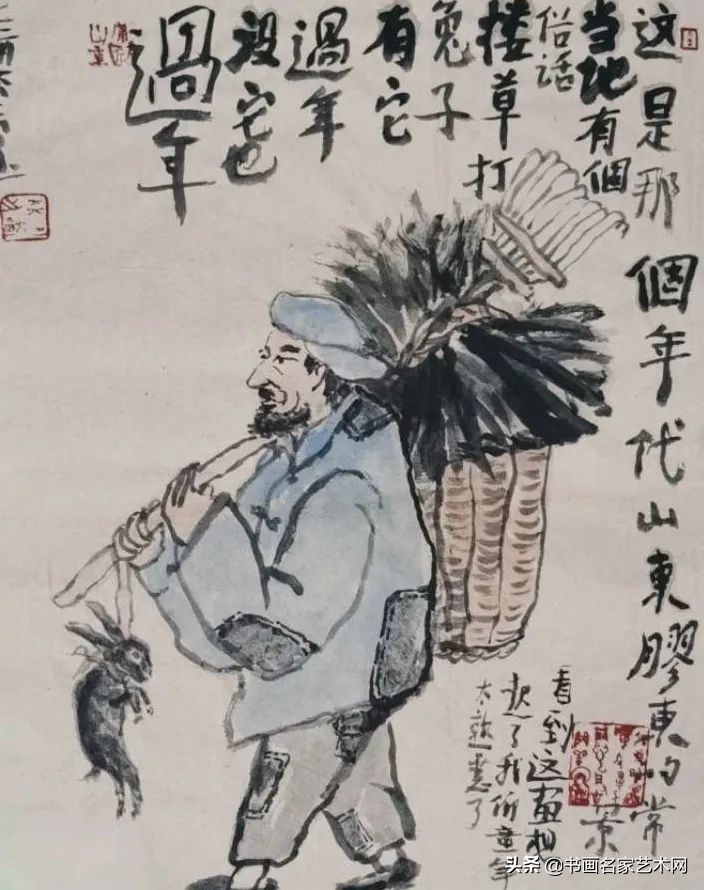 这是那個年代山東膠東的常
景
当地有個
俗话
搂草打
兔子
有它
過年
没它也
過年
看到这画相
起了我们童年
太熟悉了
头条 @书画名家艺术网